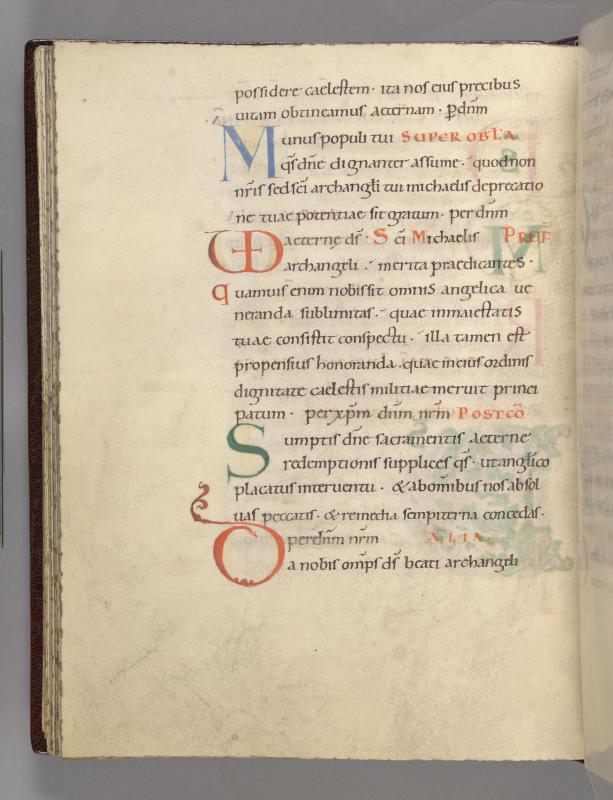 possidere caelestem · ita nos eius precibus
uitam obtineamus aeternam · P̲ dn̄m
Munus populi tui SUPER OBLA
qs̄ dn̄e dignanter assume · quod non
nr̄is sed sc̄i archangłi tui michaelis deprecatio
ne tuae potentiae sit gratum · per dn̄m
VD aeterne ds̄ · Sc̄i Michaelis PREF
archangeli · merita praedicantes ·
quamuis enim nobis sit omnis angelica ue
neranda sublimitas · quae in maiestatis
tuae consistit conspectu · illa tamen est
propensius honoranda · quae in eius ordinis
dignitate caelestis militiae meruit princi
patum · per xp̄m dn̄m nr̄m POSTCŌ
Sumptis dn̄e sacramentis aeterne
redemptionis supplices qs̄ · ut angłico
placatus interuentu · & ab om̄ibus nos absol
uas peccatis · & remedia sempiterna concedas ·
per dn̄m nr̄m ALIA
Da nobis om̄ps ds̄ beati archangeli